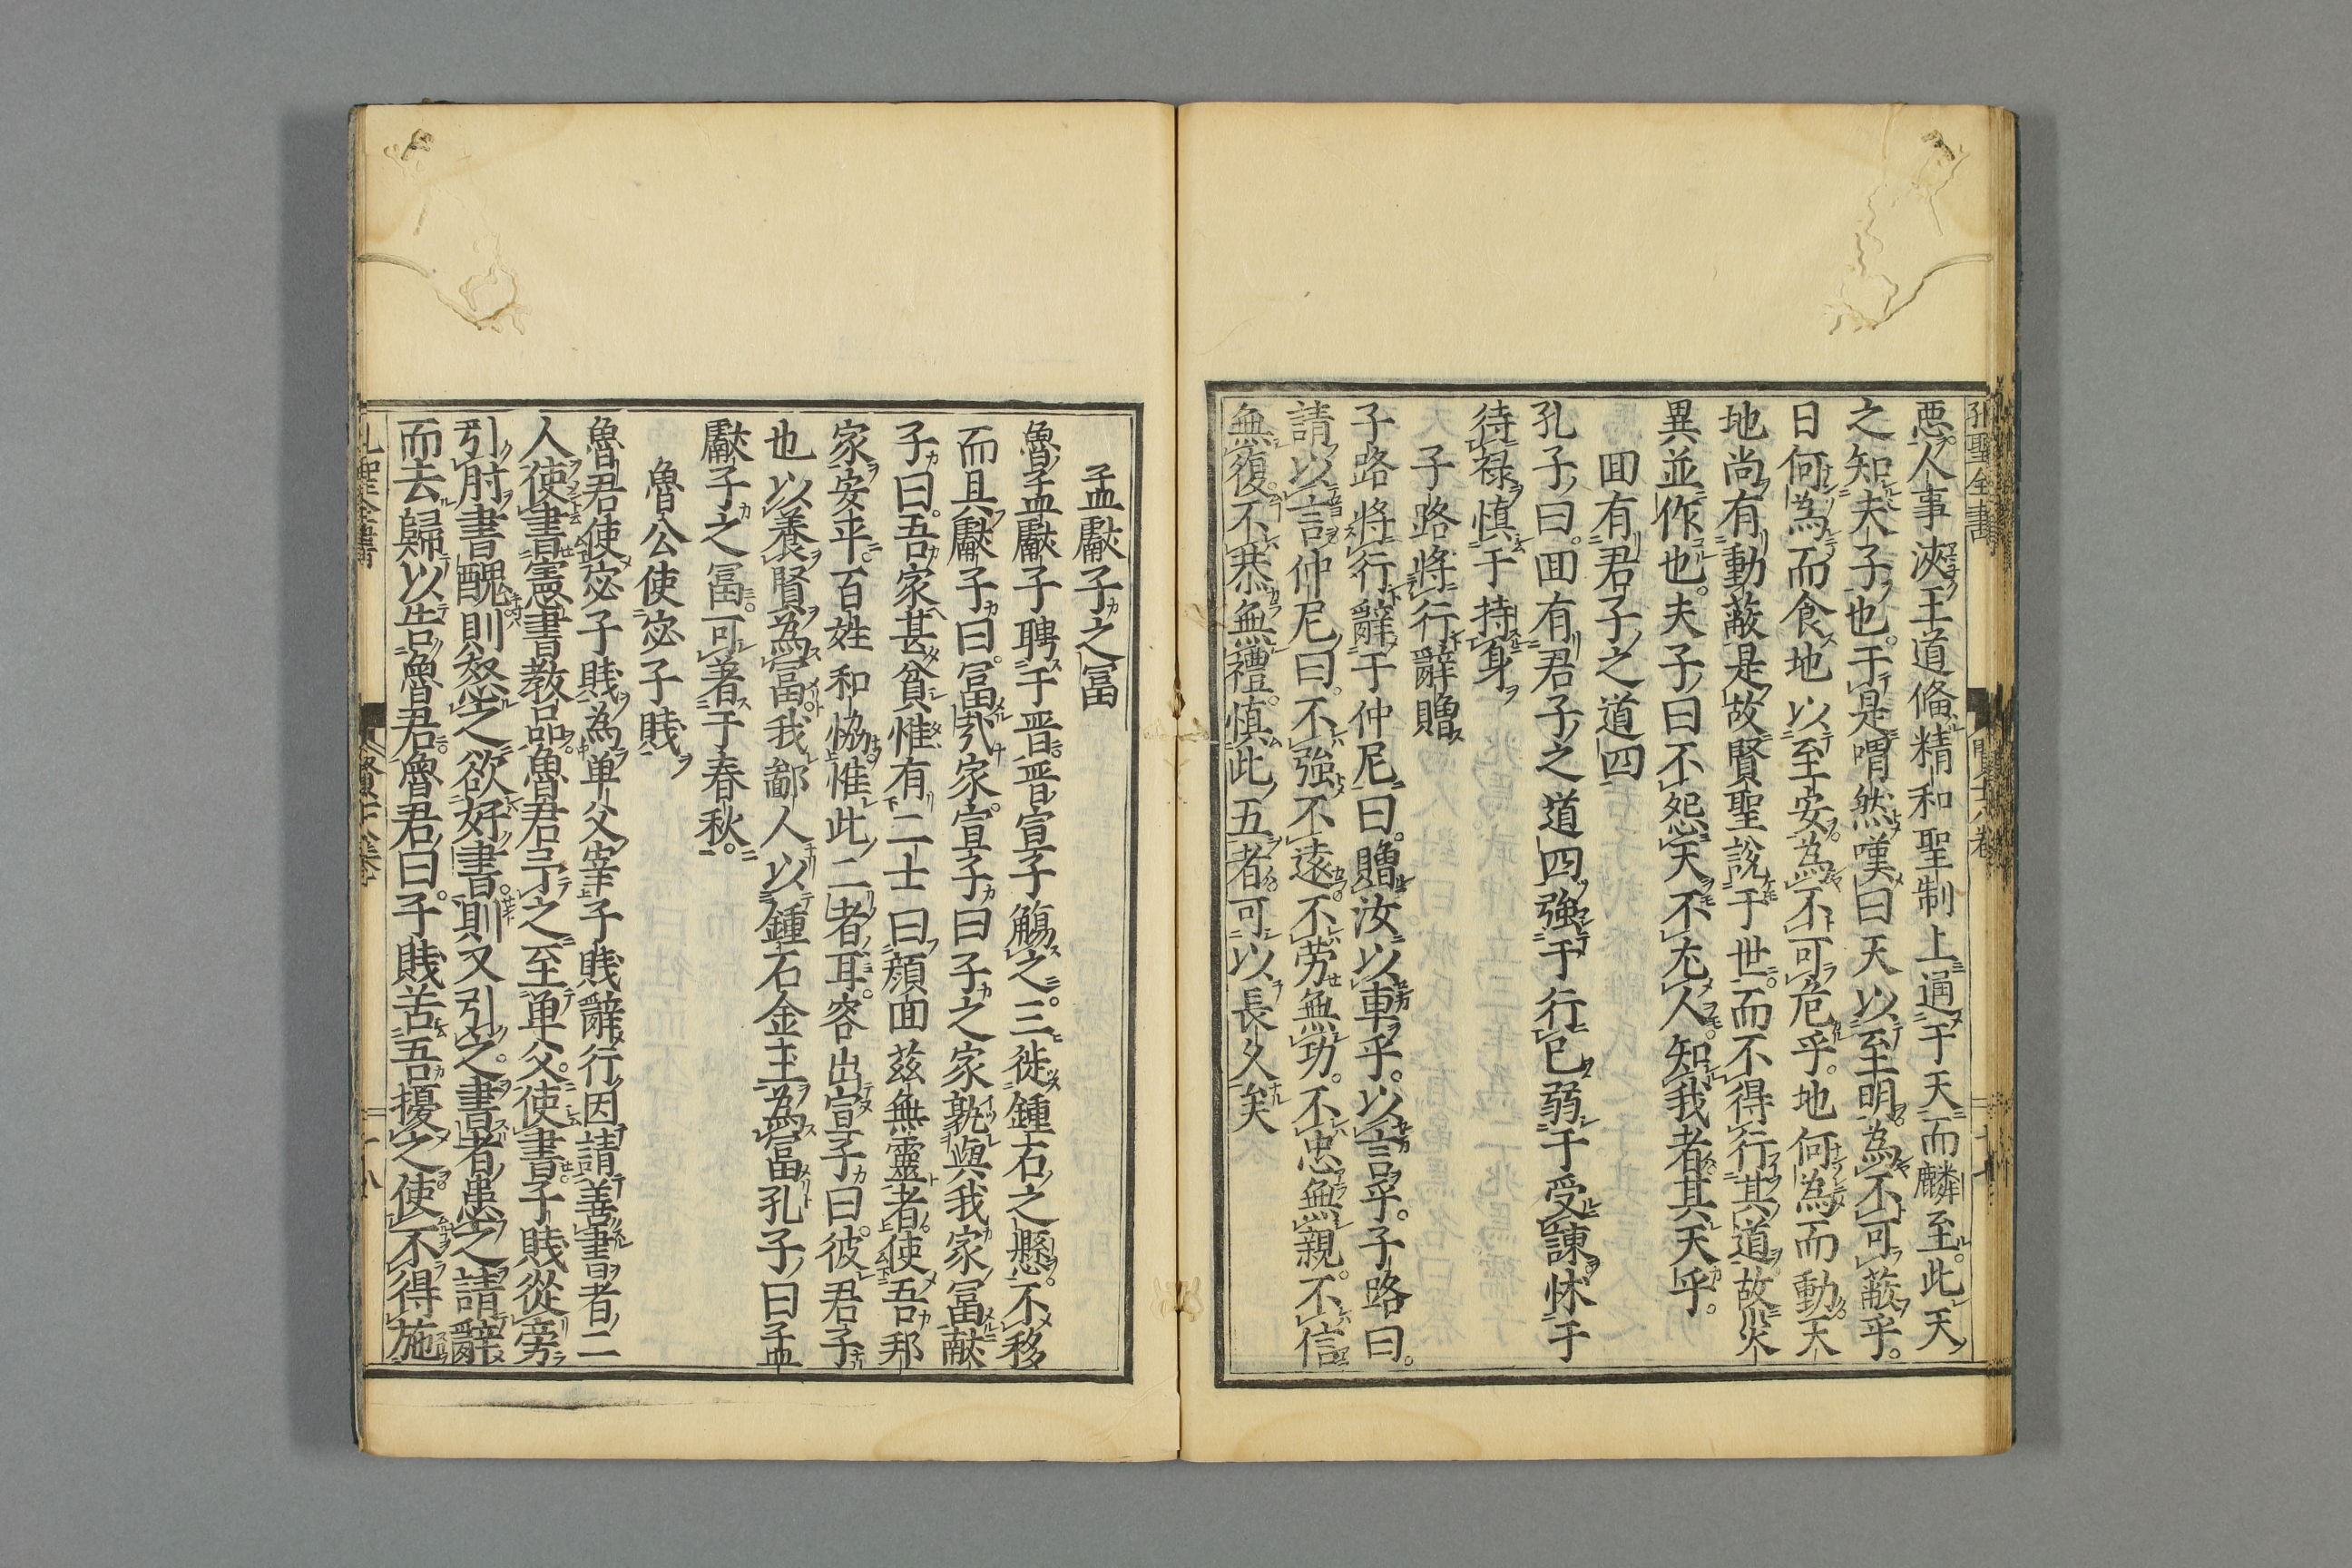 孔聖全書
惡人事浹王道備精和聖制上通于天而麟至此天
之知夫子也于是喟然嘆曰天以至明為不可蔽乎
日何為而食地以至安為不可危乎地何為而動天
地尚有動蔽是故賢聖說于世而不得行其道故災
異並作也夫子曰不怨天不尤人知我者其天乎
囬有君子之道四
孔子曰囬有君子之道四強于行已弱于受諫怵于
待禄慎于持身
子路將行辭贈
子路將行辭于仲尼曰贈汝以車乎以言乎子路曰
請以言仲尼曰不強不遠不劳無功不忠無親不信
無復不恭無禮慎此五者可以長久矣
孟獻子之冨
魯孟獻子聘于晋晋宣子觴之三徙鍾石之懸不移
而具獻子曰冨㦲家宣子曰子之家孰與我家冨献
子曰吾家甚貧惟有二士曰顔面兹無靈者使吾邦
家安平百姓和恊惟此二者耳客出宣子曰彼君子
也以養賢為冨我鄙人以鍾石金玉為冨孔子曰孟
獻子之冨可著于春秋
魯公使宓子賤
魯君使宓子賤為单父宰子賤辭行因請善書者二
人使書憲書教品魯君予之至单父使書子賤從旁
引肘書醜則怒之欲好書則又引之書者患之請辭
而去歸以告魯君魯君曰子賤苦吾擾之使不得施